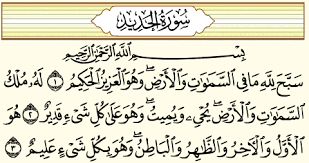 سُورَةُ الحَدِيدِ
بِسْمِ ٱللَّهِ ٱلرَّحْمَٰنِ ٱلرَّحِيمِ
سَبَّحَ لِلَّهِ مَا فِى ٱلسَّمَٰوَٰتِ وَٱلْأَرْضِ ۖ وَهُوَ ٱلْعَزِيزُ ٱلْحَكِيمُ ١ لَهُۥ مُلْكُ
ٱلسَّمَٰوَٰتِ وَٱلْأَرْضِ ۖ يُحْىِۦ وَيُمِيتُ ۖ وَهُوَ عَلَىٰ كُلِّ شَىْءٍ قَدِيرٌ ٢ هُوَ
ٱلْأَوَّلُ وَٱلْءَاخِرُ وَٱلظَّٰهِرُ وَٱلْبَاطِنُ ۖ وَهُوَ بِكُلِّ شَىْءٍ عَلِيمٌ ٣